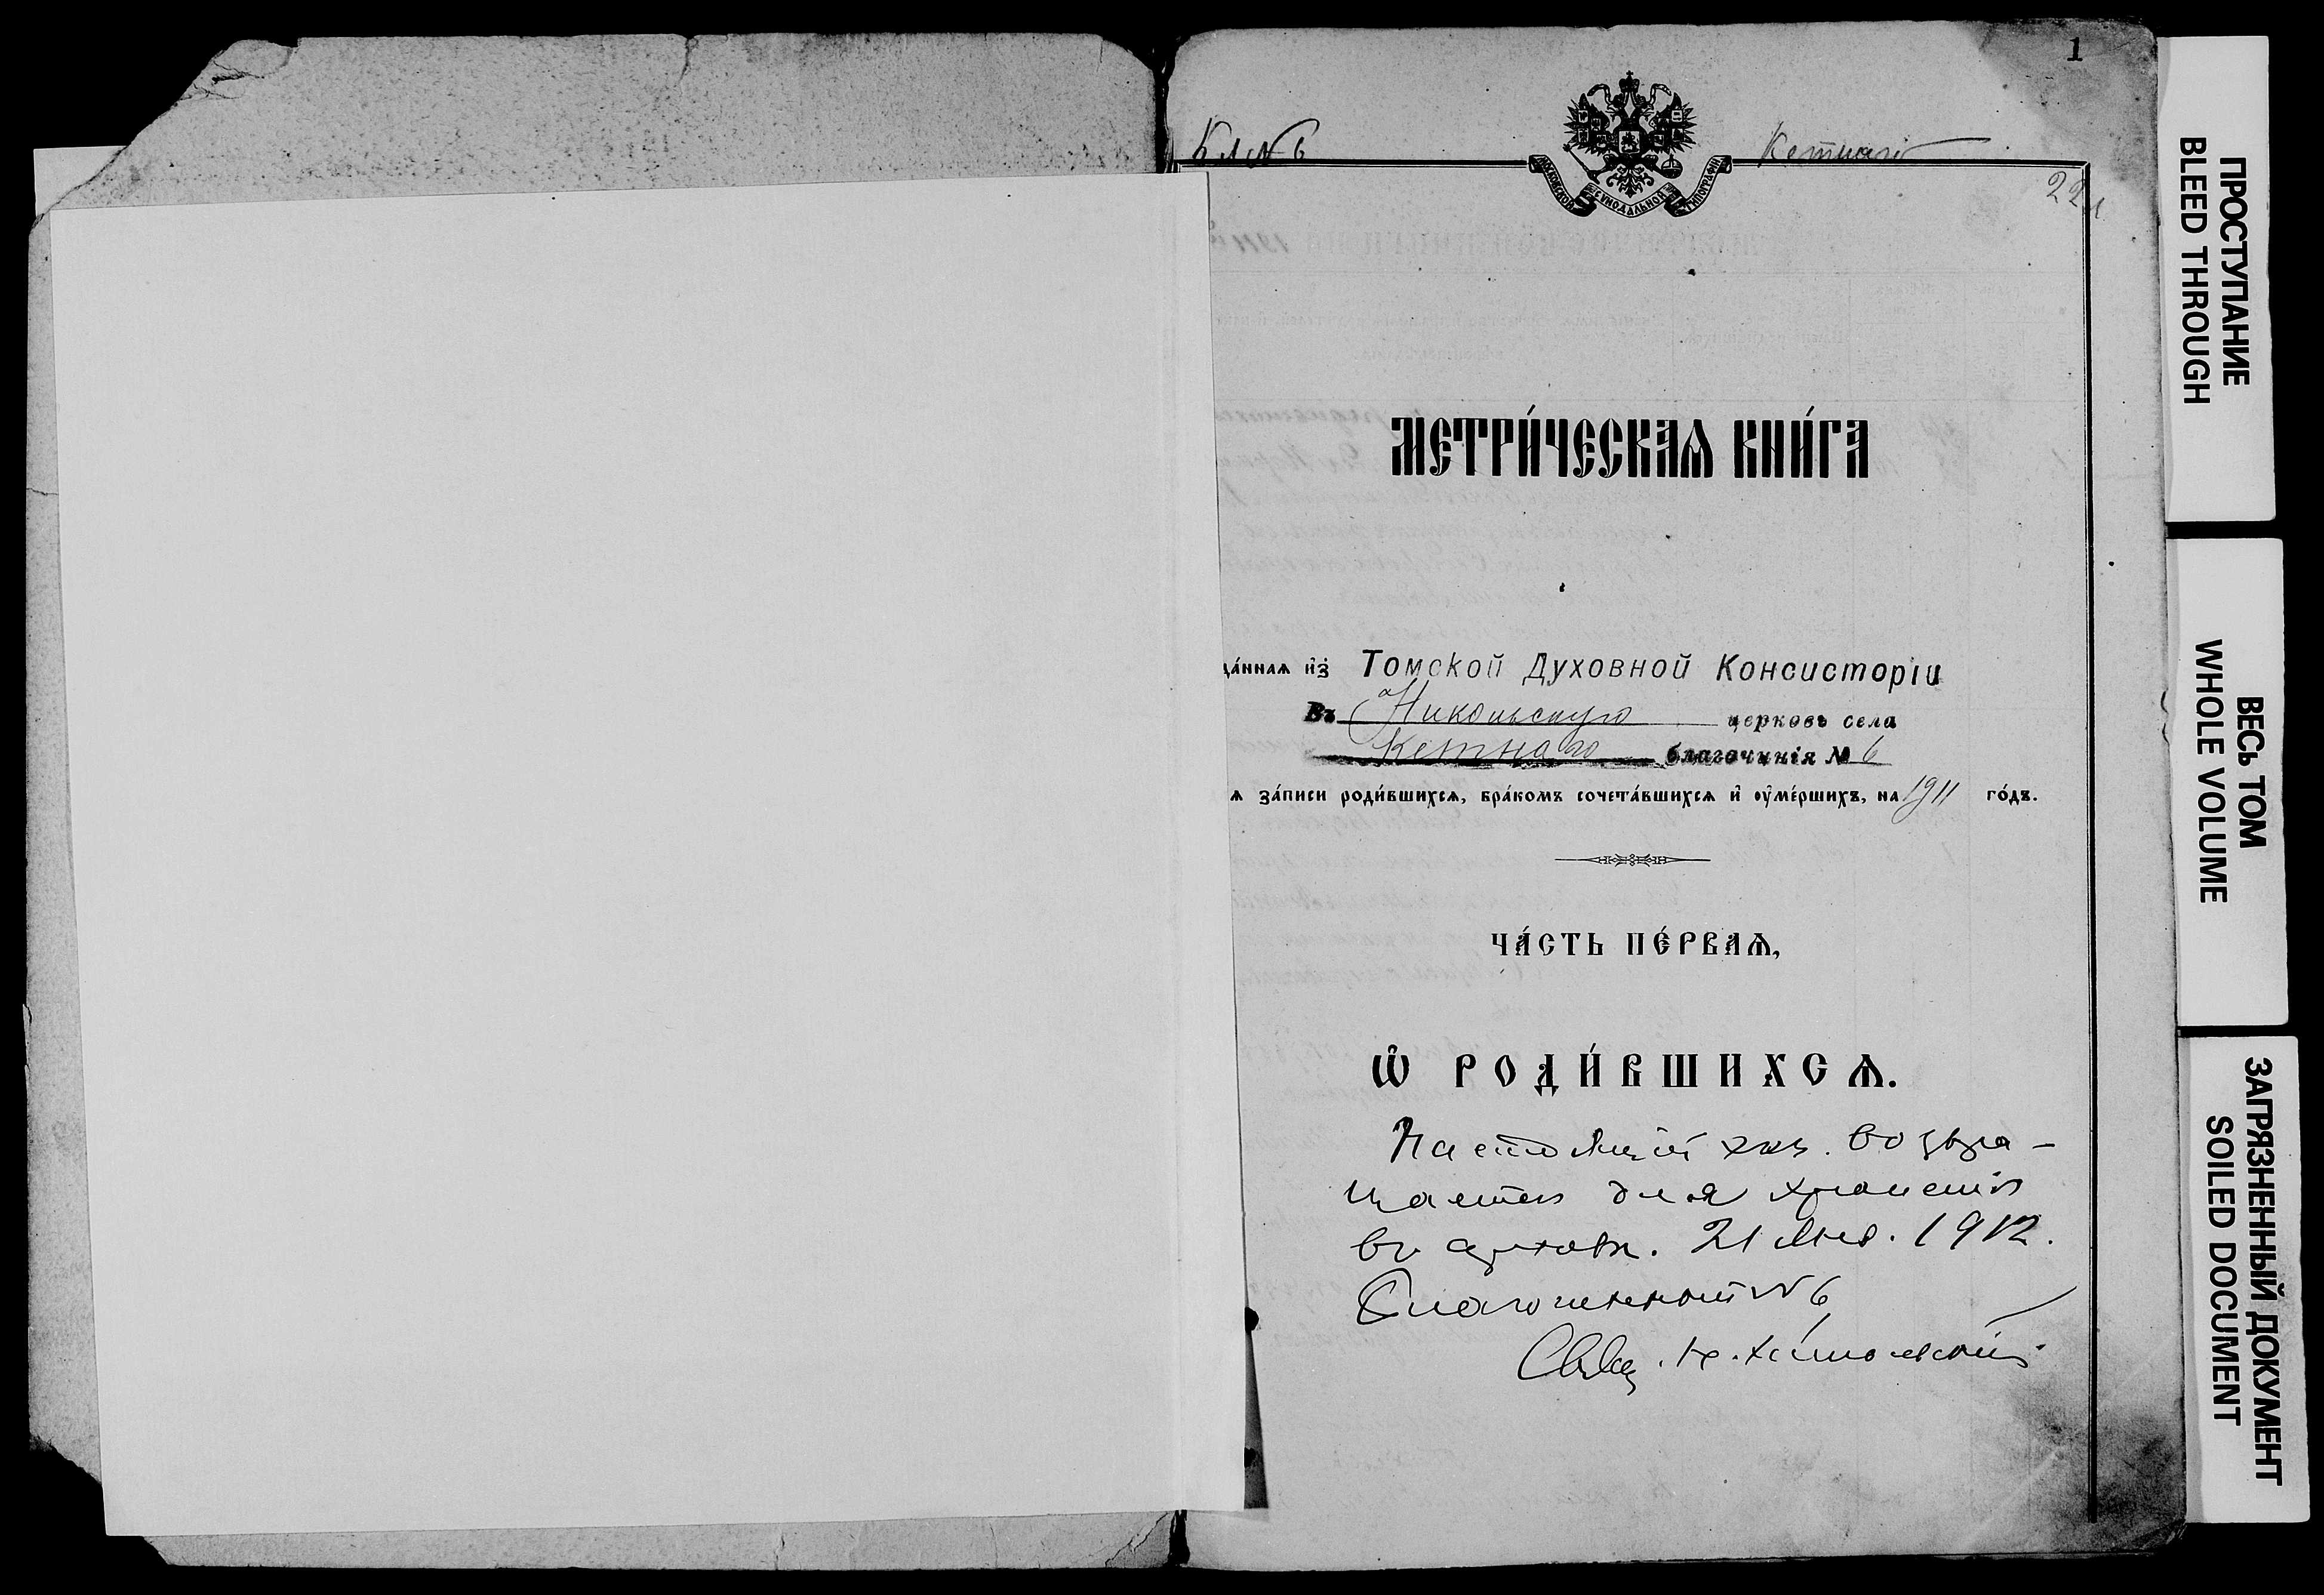 1
Бл. № 6
Кетнаго
МОСКОВСКОЙ СѴНОДАЛЬНОЙ ТИПОГРАФІИ
МЕТРИ́ЧЕСКАѦ КНИ́ГА
да́ннаѧ и҆з̾ Томской Духовной Консисторіи
Въ Никольскую церковь села
Кетнаго благочинія № 6
ѧ за́писи роди́вшихсѧ, бра́комъ сочета́вшихсѧ и҆ ᲂу҆ме́ршихъ, на 1911 го́дъ.
ЧА́СТЬ ПЕ́РВАѦ,
Ѡ҆ РОДИ́ВШИХСѦ.
Настоящій экз. возвра-
щается для храненія
въ церковн. 21 Янв. 1912.
Благочинный № 6
Свящ.
ПРОСТУПАНИЕ
BLEED THROUGH
ВЕСЬ ТОМ
WHOLE VOLUME
ЗАГРЯЗНЕННЫЙ ДОКУМЕНТ
SOILED DOCUMENT